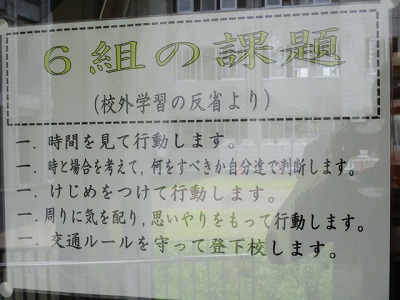 ６組の課題
(校外学習の反省より)
一．時間を見て行動します。
一．時と場合を考えて，何をすべきか自分達で判断します。
一．けじめをつけて行動します。
一．周りに気を配り，思いやりをもって行動します。
一．交通ルールを守って登下校します。